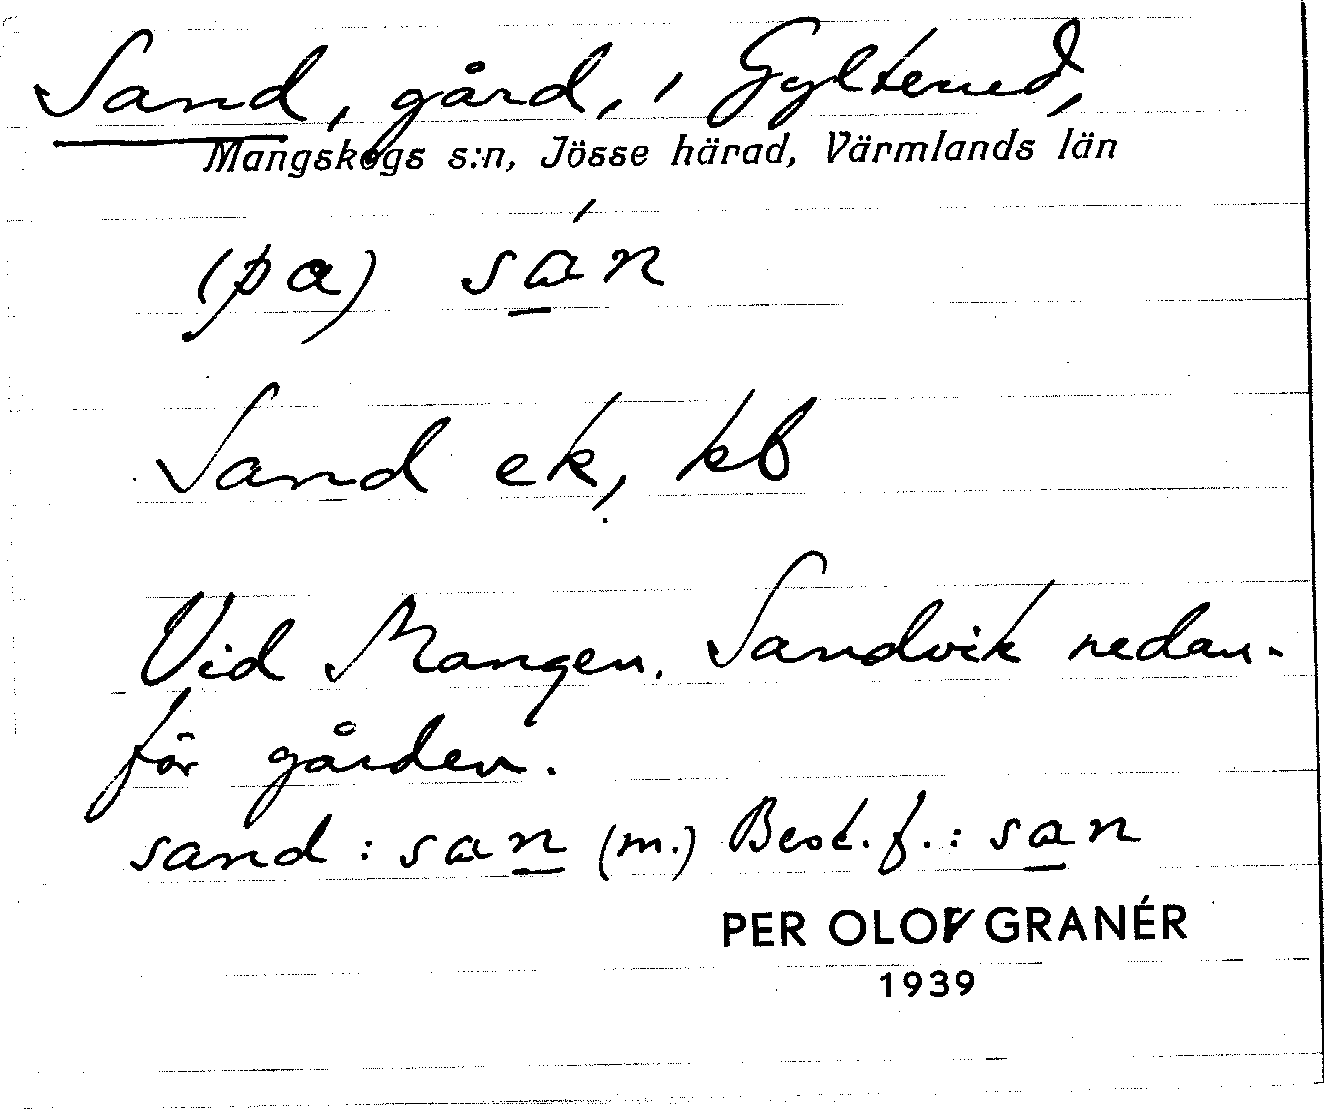 Sand, gård, i Gyltened,
Mangskogs s:n, Jösse härad, Värmlands län
(pa) sa̲´n
Sand ek, kb
Vid Mangen. Sandvik nedan-
för gården.
sand : san̲ (m.) Best. f. : sa̲n
PER OLOV GRANÉR
1939